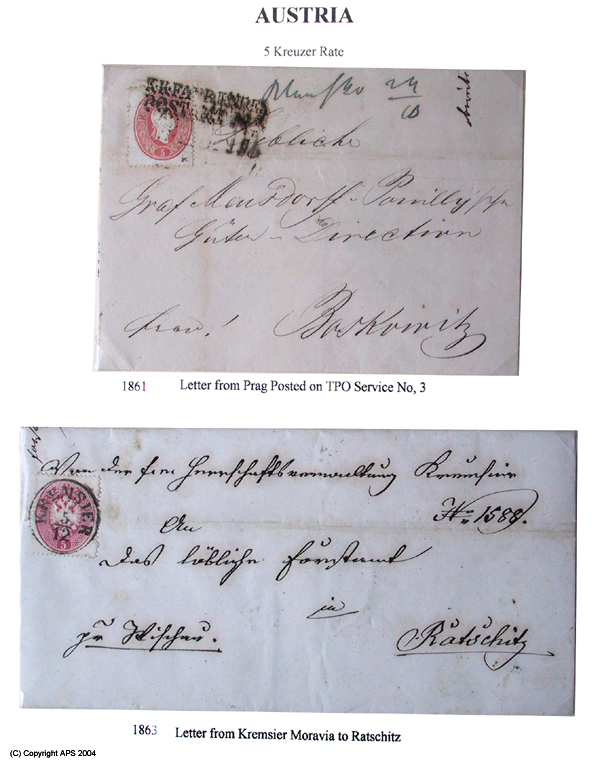 AUSTRIA
5 Kreuzer Rate
24
10
Löbliche
Graf Mensdorff-Pouilly
Güter-Direction
Boskowitz
5
1861 Letter from Prag Posted on TPO Service No, 3
Von der Herrschaftsverwaltung Kremsier
No 1588.
KREMSIER
5
12
5
An
Das löbliche Forstamt
in
pr Wischau.
Ratschitz
1863 Letter from Kremsier Moravia to Ratschitz
(C) Copyright APS 2004